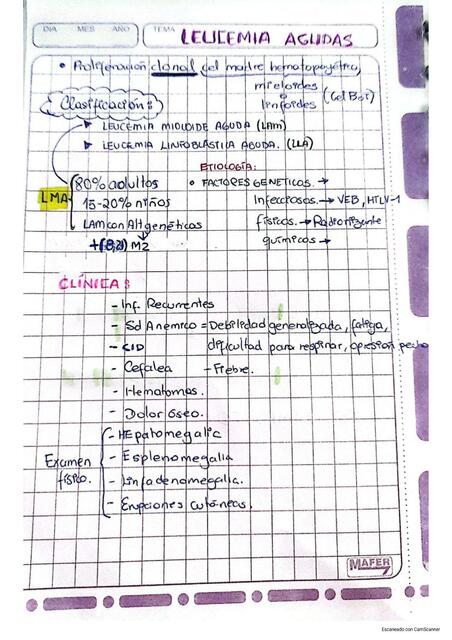 DIA MES AÑO TEMA LEUCEMIA AGUDAS
• Proliferación clonal cel madre hematopoyética,
mieloides
o
linfoides (Cel B o T)
Clasificación:
➤ LEUCEMIA MIOLOIDE AGUDA (LAM)
➤ LEUCEMIA LINFOBLÁSTICA AGUDA. (LLA)
ETIOLOGÍA:
LMA
80% adultos
15-20% niños
LAM con Alt genéticos
+(8,21) M2
• FACTORES GENETICOS. →
Infecciosos. → VEB, HTLV-1
físicos. → Radioionizante
químicos →
CLÍNICA:
- Inf. Recurrentes
- Sd Anemico = Debilidad generalizada, fatiga,
- CID dificultad para respirar, opresion pecho
- Cefalea - Fiebre.
- Hematomas.
- Dolor óseo.
Examen físico.
- HEpatomegalia
- Esplenomegalia
- Linfadenomegalia.
- Erupciones cutáneas.
MAFER
Escaneado con CamScanner